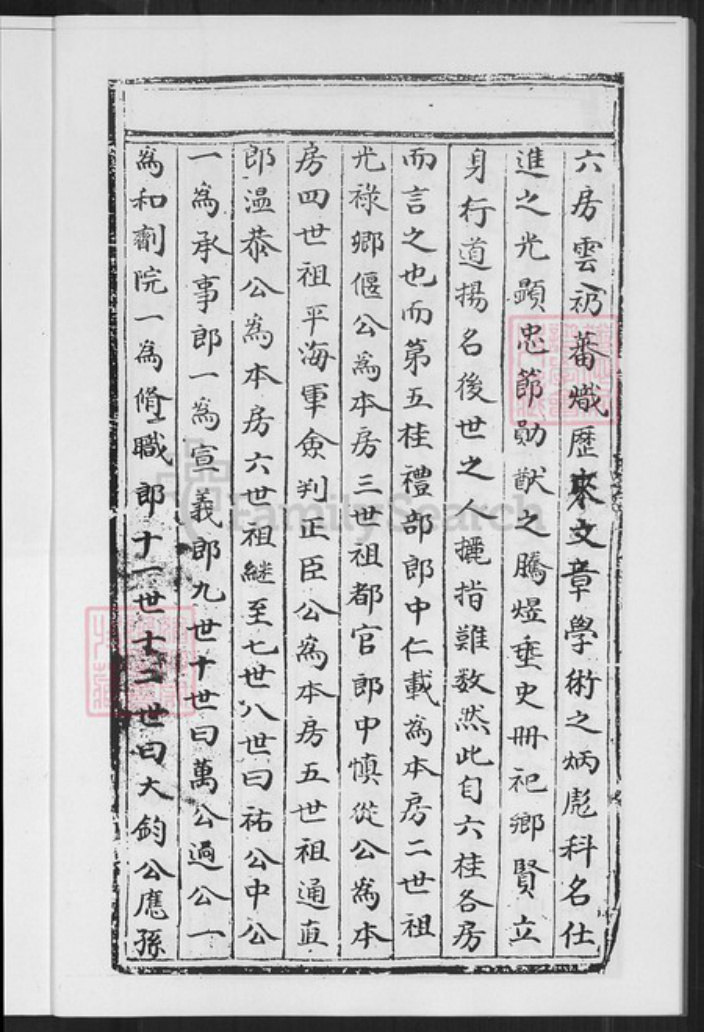 六房雲礽蕃熾歷來文章學術之炳彪科名仕
進之光顯忠節勛猷之騰煜垂史冊祀鄉賢立
身行道揚名後世之人擢指難数然此自六桂各房
而言之也而第五桂禮部郎中仁載為本房二世祖
光祿鄉偃公為本房三世祖都官郎中慎從公為本
房四世祖平海軍僉判正臣公為本房五世祖通直
郎温恭公為本房六世祖継至七世八世曰祐公中公
一為承事郎一為宣義郎九世十世曰萬公過公一
為和劑院一為脩職郎十一世十二世曰大鈞公應孫
FamilySearch